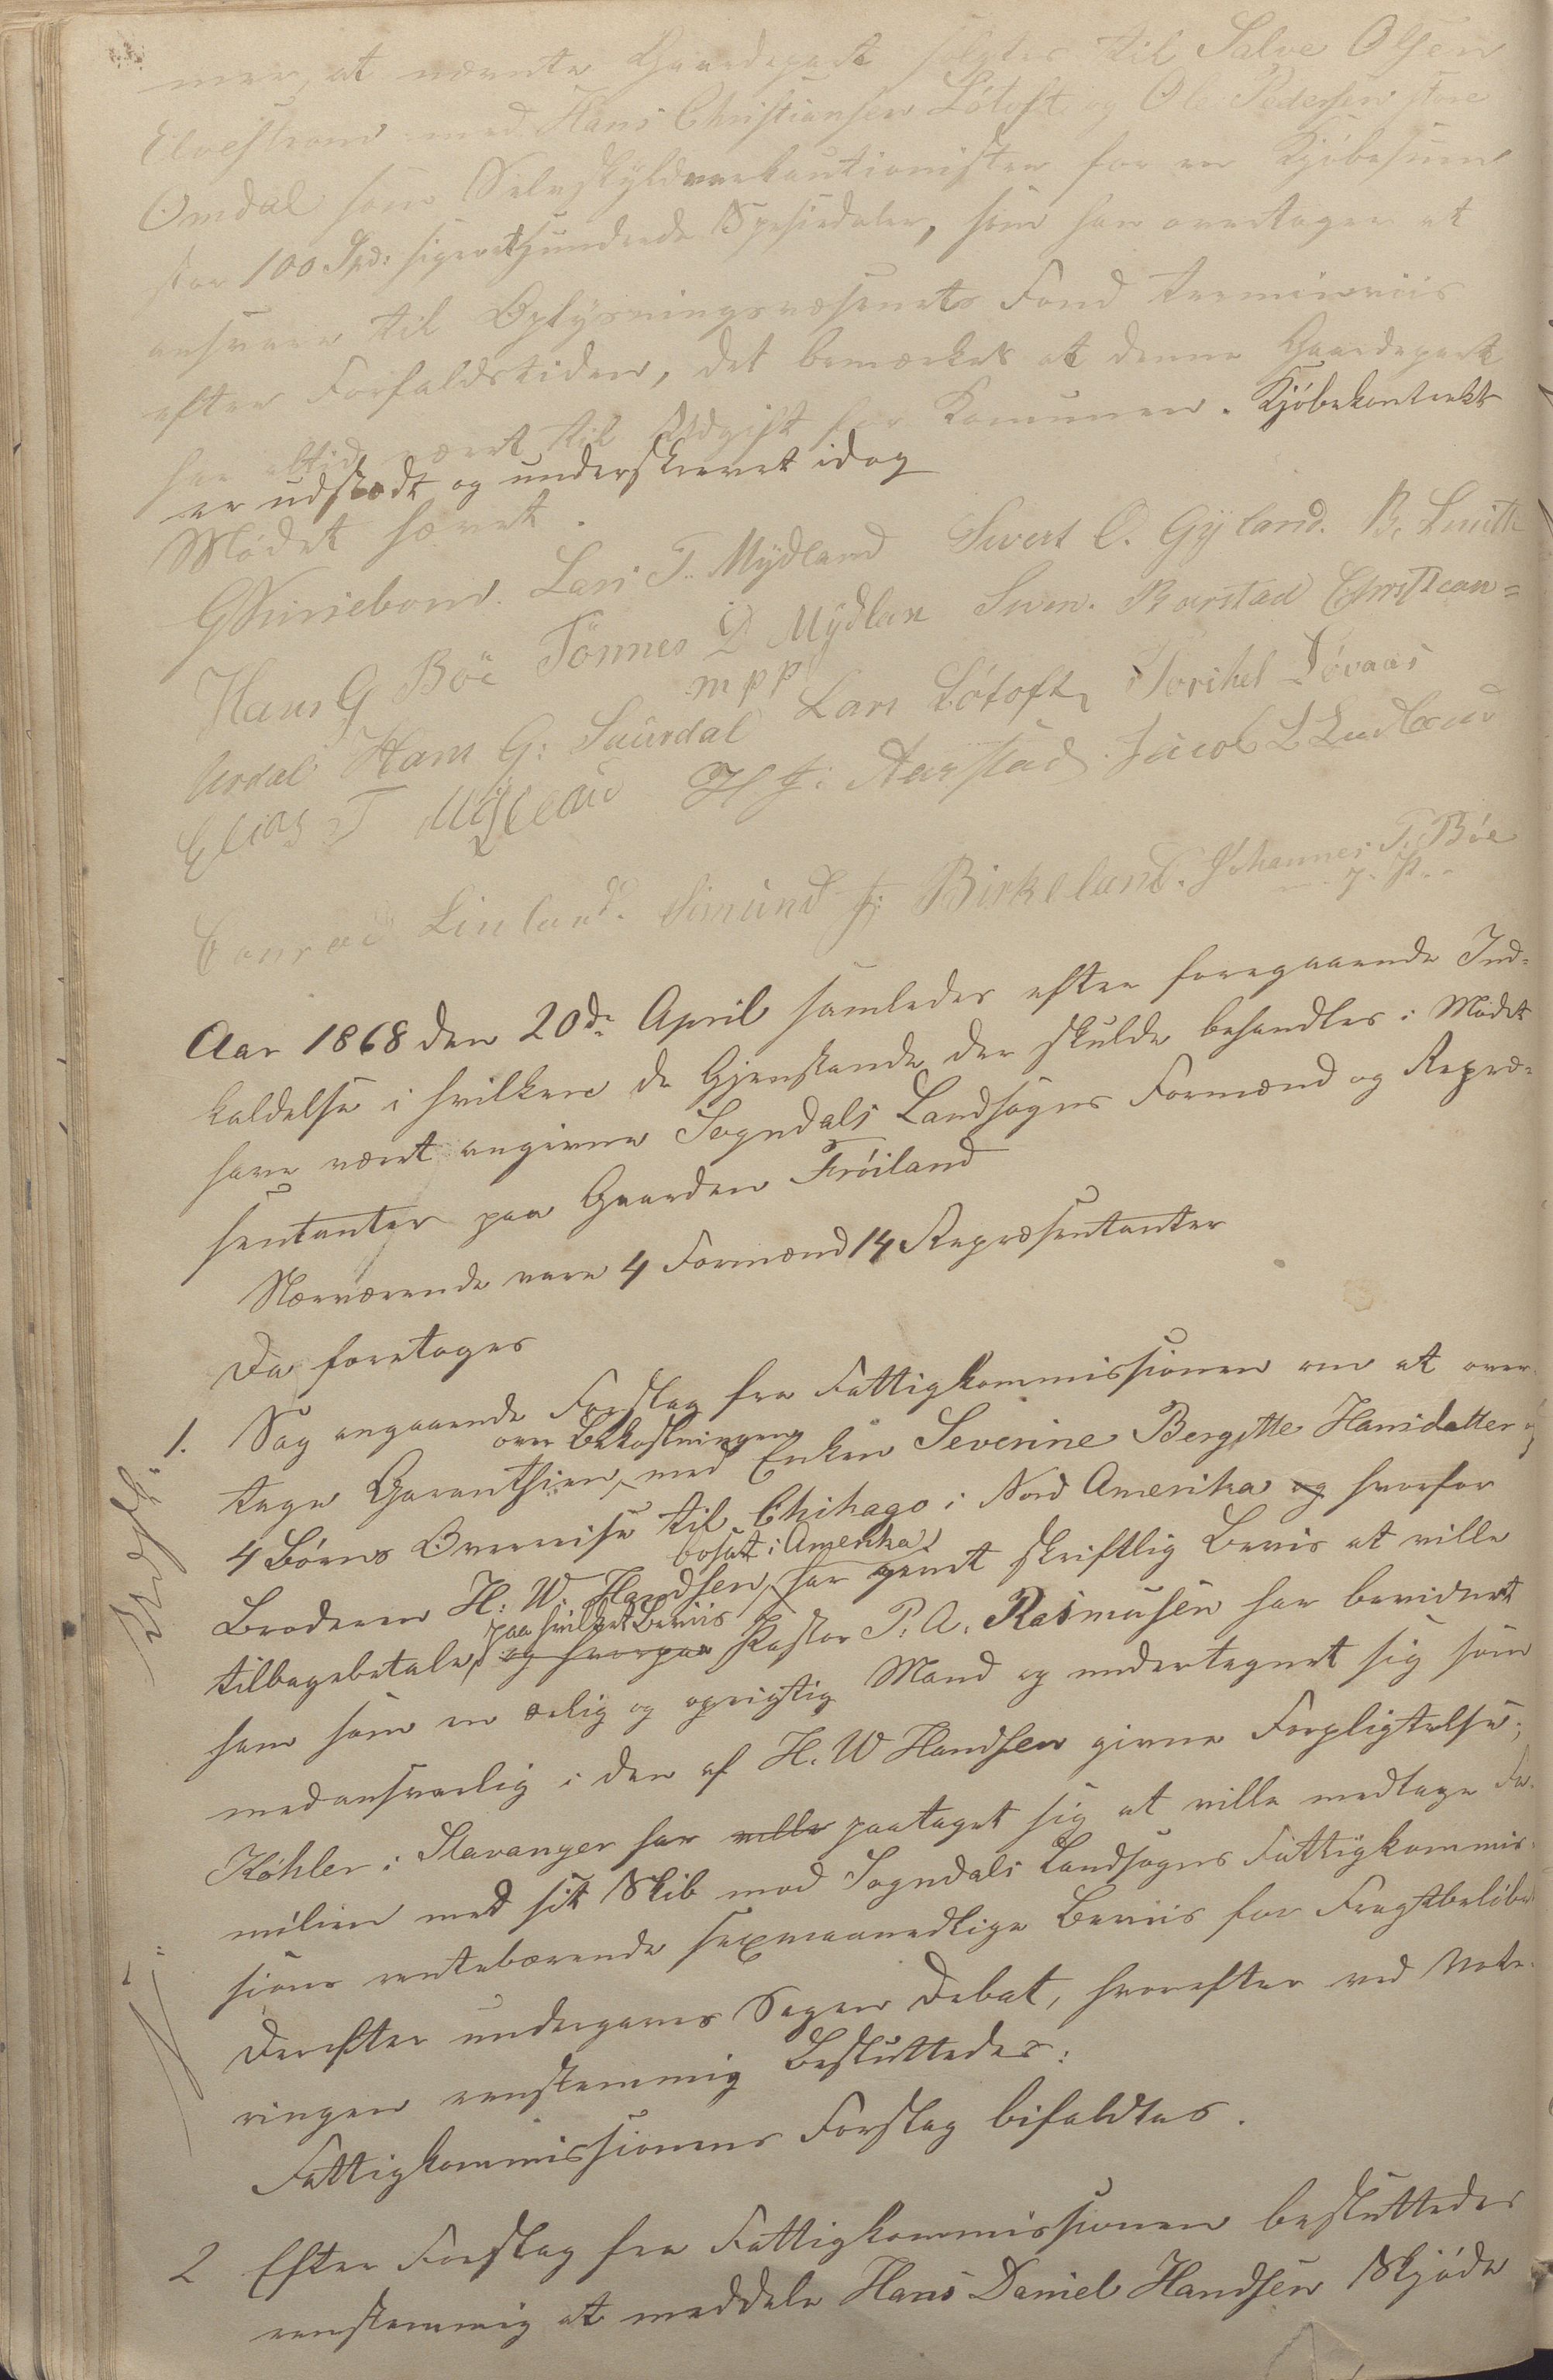 mer, at nævnte Gaardepart sælges til Salve Olsen
Elvestrand med Hans Christiansen Løtoft og Ole Pedersen store
Omdal som Selvskyldnerkautionister for en Kjøbesum
stor 100 Spd: siger et hundrede Spesiedaler, som han overtager at
ansvare til Oplysningsvæsenets Fond terminviis
efter Forfaldstiden, det bemærkes at denne Gaardepart
har altid været til Udgift for Komunen. Kjøbekontrakt
er udstædt og underskrevet idag
Mødet hævet.
Lars T. Mydland Sivert O. Gyland. B. Smith
Hans G Böe Tönnes D Mydlan Swen. Barstad Christian=
mpp
Urdal Hans G: Saurdal Lars Løtoft, Torikel Løvaas
Elias T Mydland H J: Aarstad Jacob L Lindland
Conrad Linland. Simund J: Birkeland. Johannes T. Bøe
Aar 1868 den 20de April samledes efter foregaaende Ind-
kaldelse i hvilken de Gjenstande der skulde behandles i Mødet
have været angivne Sogndals Landsogns Formænd og Repræ-
sentanter paa Gaarden Frøiland
Nærværende vare 4 Formænd 14 Repræsentanter
Da foretoges
1. Sag angaaende Forslag fra Fattigkommissionen om at over-
over Bekostningen
tage Garantien med Enken Severine Bergitte Hansdatter og
4 Børns Overreise til Chikago i Nord Amerika og hvorfor
bosat i Amerika
Broderen H: W: Handsen, har givet skriftlig Bevis at ville
paa hvilket Beviis
tilbagebetale, og hvorpaa Pastor P. A. Rasmusen har bevidnet
ham som en ærlig og oprigtig Mand og undertegnet sig som
medansvarlig i den af H. W Handsen givne Forpligtelse;
Køhler i Stavanger har ville paataget sig at ville medtage Fa-
milien med sit Skib mod Sogndals Landsogns Fattigkommis-
sions rentebærende sexmaanedlige Beviis for Fragtbeløbet
Derefter undergaves Sagen Debat, hvorefter ved Vote-
ringen eenstemmig besluttedes:
Fattigkommissionens Forslag bifaldtes.
2 Efter Forslag fra Fattigkommissionen besluttedes
eenstemmig at meddele Hans Daniel Handsen Skjøde